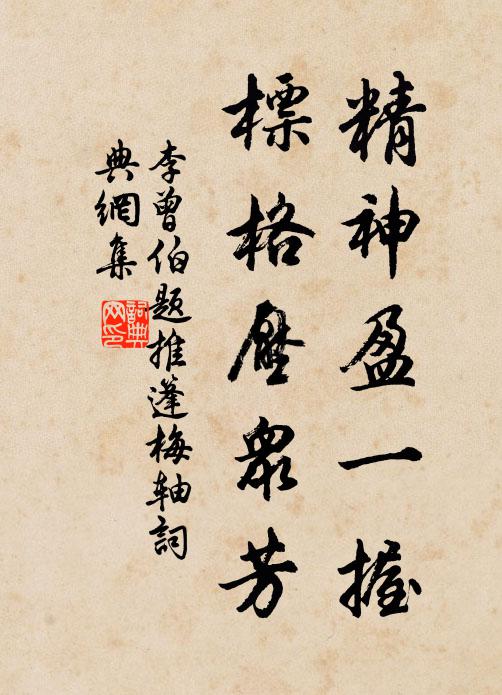 精神盈一握
標格壓眾芳
李曾伯題推蓬梅軸詞
典網集
詞典网印